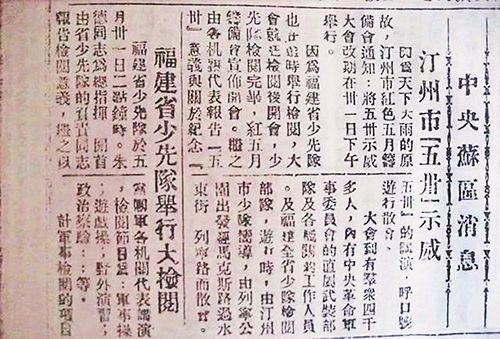 中央蘇區消息
汀州市「五卅」示威
因當天下大雨的原
故，汀州市紅色五月籌
備會通知：將五卅示威
大會改期在卅一日下午
舉行。
因爲福建省少先隊
也在這時舉行檢閱，大
會就從檢閱後開會，少
先隊檢閱完畢，紅五月
籌備會宣佈開會。繼之
由各機關代表報告「五
卅」意義與關於紀念
五卅」的講演、呼口號
遊行散會。
大會到有羣衆四千
多人，內有中央革命軍
事委員會的直屬武裝部
隊及各機關的工作人員
。及福建全省少隊檢閱
部隊，遊行時，由汀州
市少隊嚮導，由列寧公
園出發經馬克斯路過水
東街 列寧路而散會。
福建省少先隊舉行大檢閱
福建省少先隊於五
月卅一日二點鐘時。朱
德同志爲總指揮 開首
由省少先隊的負責同志
報告檢閱意義，繼之以
黨團軍各機關代表講演
，檢閱節目爲：軍事操
；遊戲操；野外演習；
政治察驗：：等。
計軍事檢閱的項目